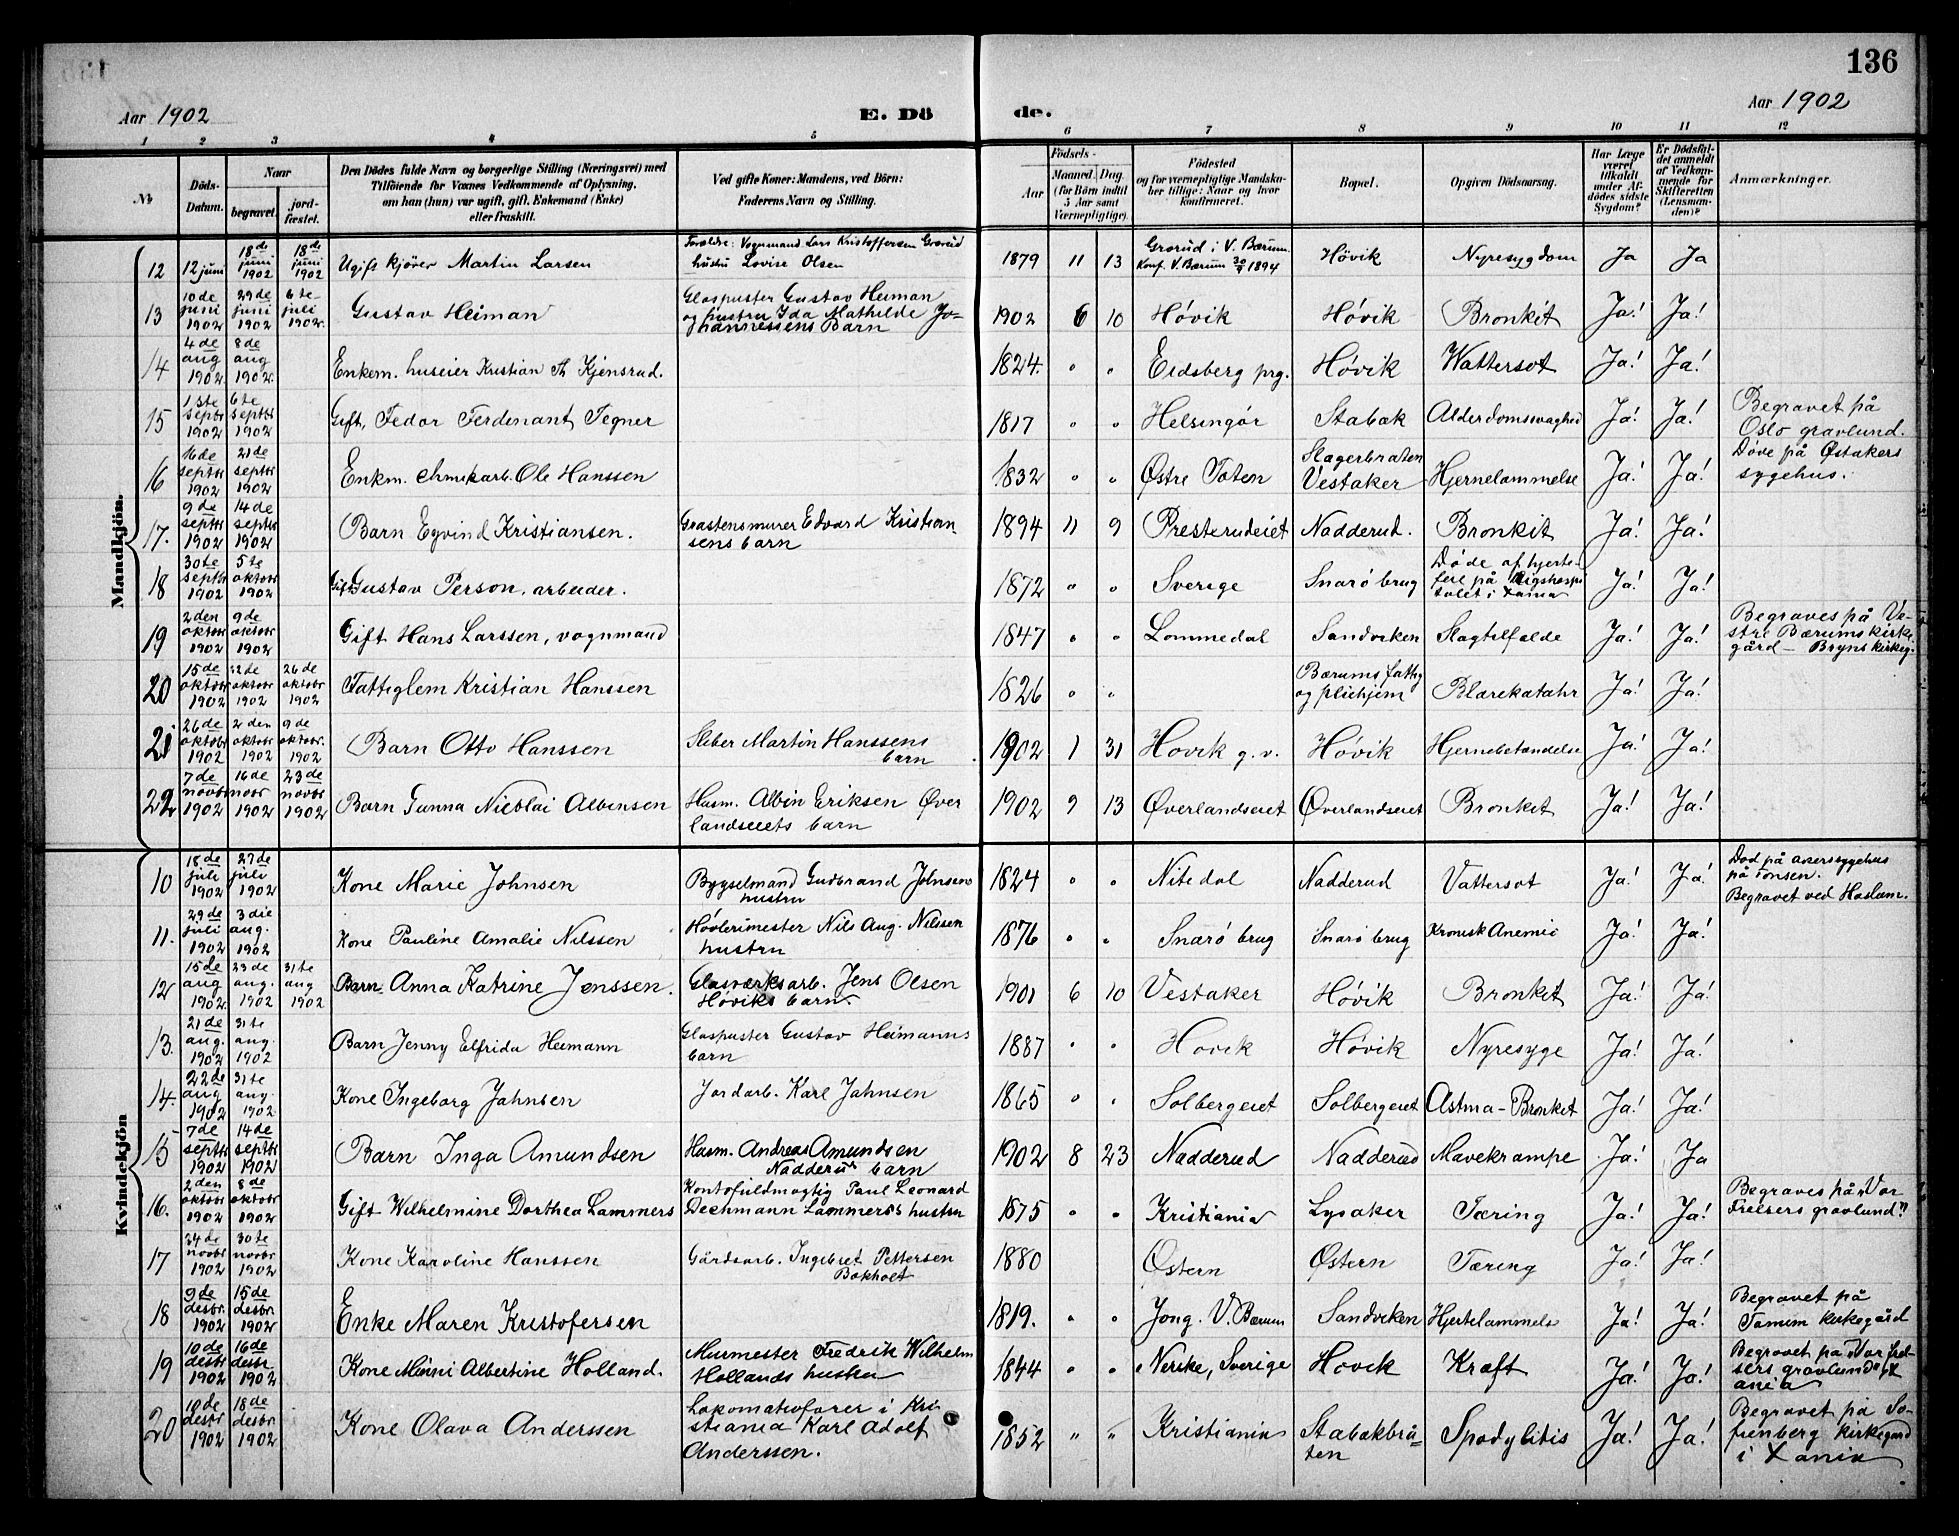 136
Aar 1902 E. Dö de. Aar 1902
1 2 3 4 5 6 7 8 9 10 11 12
No
Döds-Datum.
Naar
begravet.
jord-fæstet.
Den Dödes fulde Navn og borgerlige Stilling (Næringsvei) med
Tilföiende for Voxnes Vedkommende af Oplysning,
om han (hun) var ugift, gift, Enkemand (Enke)
eller fraskilt.
Ved gifte Koner: Mandens, ved Börn:
Faderens Navn og Stilling.
Födsels-
Aar
Maaned. Dag.
(for Börn indtil
5 Aar samt
Værnepligtige).
Födested
og for værnepligtige Mandska-
ber tillige: Naar og hvor
konfirmeret.
Bopæl.
Opgiven Dödsaarsag.
Har Læge
været
tilkaldt
under Af-
dödes sidste
Sygdom?
Er Dödsfal-
det anmeldt
af Vedkom-
mende for
Skifteretten
(Lensman-
den)?
Anmærkninger.
Mandkjön.
12 12 juni 18de juni 1902 18de juni 1902 Ugift kjører Martin Larsen Forældre: Vognmand Lars Kristoffersen Grorud hustru Lovise Olsen 1879 11 13 Grorud i V. Bærum Konf. V. Bærum 30/9 1894 Høvik Nyresygdom Ja Ja
13 10de juni 1902 29de juni 1902 6te juli 1902. Gustav Heiman Glaspuster Gustav Heiman og hustru Ida Mathilde Johannessens Barn 1902 6 10 Høvik Høvik Bronkit Ja! Ja!
14 4de aug 1902 8de aug 1902. Enkem. huseier Kristian Th Kjensrud. 1824. " " Eidsberg prg. Høvik Wattersot Ja! Ja!
15 1ste septbr 1902 6te septbr 1902 Gift, Fedor Ferdinant Tegner 1817 " " Helsingør Stabæk Alderdomsvaghed Ja! Ja! Begravet på Oslo gravlund.
16 16de septbr 1902 21de septbr 1902 Enkm. Ole Hanssen 1832 " " Østre Toten Slagerbraten Vestaker Hjernelammelse Ja! Ja! Døde på Østakers sygehus.
17. 9de septbr 1902 14de septbr 1902 Barn Eyvind Kristiansen. Grastensmurer Edvard Kristiansens barn 1894 11 9 Presterudeiet Nadderud. Bronkit Ja! Ja!
18 30te septbr 1902 5te oktobr 1902 Gift Gustav Person, arbeider. 1872 " " Sverige Snarø brug Døde af hjertefeil på Rigshospitalet i Xania Ja! Ja!
19 2den oktobr 1902 9de oktobr 1902 Gift Hans Larssen, vognmand 1847 " " Lommedal Sandviken Slagtilfælde Ja! Ja! Begraves på Vestre Bærums kirkegård - Bryns kirkeg.
20 15de oktobr 1902 22de oktobr 1902 26de oktobr 1902 Fattiglem Kristian Hanssen 1826 " " Bærums fattig og pleihjem Blærekatahr Ja! Ja!
21 26de oktobr 1902 2den oktobr 1902 9de oktobr. 1902 Barn Otto Hanssen Sliber Martin Hanssens barn 1902 1 31 Høvik g. v. Høvik Hjernebetændelse Ja! Ja!
22 7de novbr 1902 16de novbr 1902 23de novbr 1902 Barn Gunna Nicolai Albinsen Husm. Albin Eriksen Øverlandseiets barn 1902 9 13 Øverlandseiet Øverlandseiet Bronkit Ja! Ja!
Kvindekjön
10 18de juli 1902 27de juli 1902 Kone Marie Johnsen Bygselmand Gudbrand Johnsens hustru 1824 " " Nitedal Nadderud Vattersot Ja! Ja! Død på akerssygehus på Tonsen. Begravet ved Haslum.
11. 29de juli 1902 3die aug. 1902 Kone Pauline Amalie Nilssen Høvlerimester Nils Aug. Nilssen hustru 1876 " " Snarø brug Snarø brug Kronisk Anemie Ja! Ja!
12 15de aug 1902. 23de aug. 1902 31te aug 1902 Barn Anna Katrine Jenssen. Glasværksarb. Jens Olsen Høviks barn. 1901 6 10 Vestaker Høvik Bronkit Ja! Ja!
13. 21de aug. 1902 31te aug. 1902 Barn Jenny Elfrida Heimann Glaspuster Gustav Heimanns barn 1887 " " Høvik Høvik Nyresyge Ja! Ja!
14. 22de aug 1902 31te aug. 1902. Kone Ingeborg Jahnsen Jordarb. Karl Jahnsen 1865 " " Solbergeiet Solbergeiet Astma-Bronkit Ja! Ja!
15 7de septbr 1902 14de septbr 1902 Barn Inga Amundsen Husm. Andreas Amundsen Nadderud barn 1902 8 23 Nadderud Nadderud Mavekrampe Ja! Ja
16. 2den oktobr 1902 8de oktobr 1902 Gift Wilhelmine Dorthea Lammers Kontofuldmægtig Paul Leonard Dechmann Lammers's hustru 1875 " " Kristiania Lysaker Tæring Ja! Ja! Begraves på "Vor Frelsers gravlund"
17 24de novbr 1902 30te novbr 1902 Kone Karoline Hanssen Gårdsarb. Ingebret Pettersen Bokholt 1880 Østern Østern Tæring Ja! Ja!
18 9de desbr. 1902 15de desbr. 1902 Enke Maren Kristofersen 1819. " " Jong. V. Bærum Sandviken Hjertelammels Ja! Ja! Begravet på Tanum kirkegård
19 10de desbr 1902 16de desbr 1902 Kone Minni Albertine Holland. Murmester Fredrik Wilhelm Hollands hustru 1844 " " Nerike, Sverige Høvik Kræft Ja! Ja! Begravet på "Vor frelsers gravlund" Xania
20 10de desbr 1902 18de desbr 1902 Kone Olava Anderssen Lokomativfører i Kristiania Karl Adolf Anderssen. 1852 " " Kristiania Stabækbråten Spodylitis Ja! Ja! Begravet på Sofienberg kirkegård i Xania